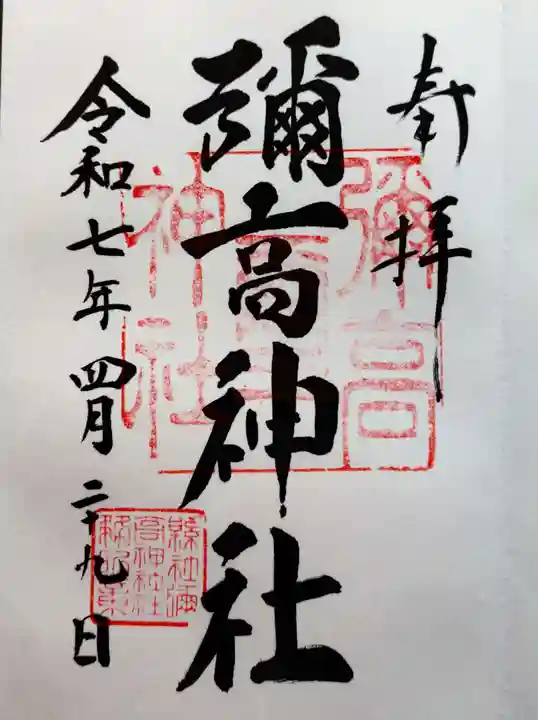 奉拝
彌高神社
令和七年四月二十九日
彌高
神社
縣社彌
高神社社
務所之章